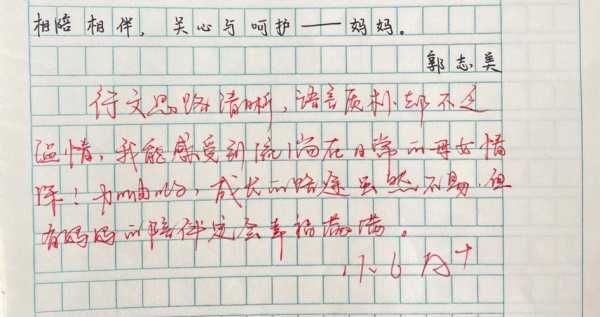 相陪相伴，关心与呵护——妈妈。
郭志美
行文思路清晰，语言质朴却不乏
温情，我能感受到流淌在日常的母女情
深！加油哟，成长的路途虽然不易，但
有妈妈的陪伴定会幸福满满。
1.6 A+